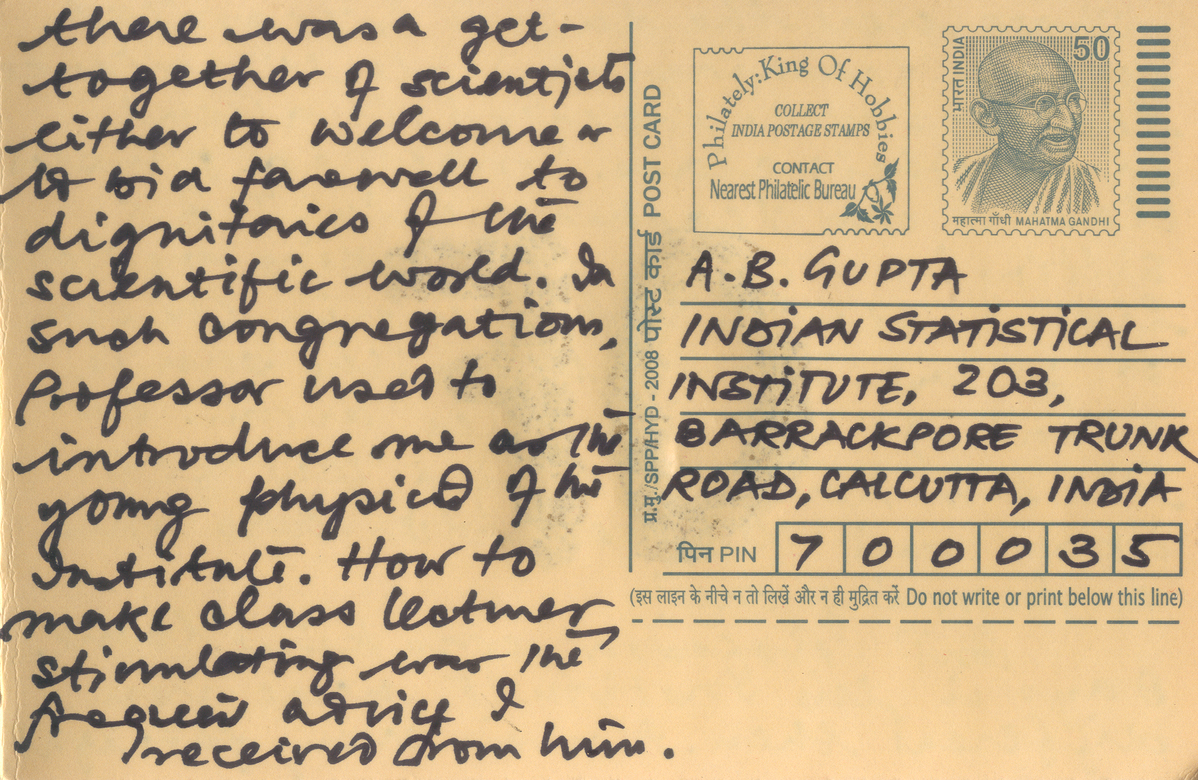 there was a get-
together of scientists
either to welcome or
to bid farewell to
dignitaries of the
scientific world. In
such congregations,
Professor used to
introduce me as the
young physicist of the
Institute. How to
make class lectures
stimulating was the
frequent advice I
received from him.
प्र.मु./SPP/HYD - 2008 पोस्ट कार्ड POST CARD
Philately: King Of Hobbies
COLLECT
INDIA POSTAGE STAMPS
CONTACT
Nearest Philatelic Bureau
भारत INDIA
50
महात्मा गाँधी MAHATMA GANDHI
A. B. GUPTA
INDIAN STATISTICAL
INSTITUTE, 203,
BARRACKPORE TRUNK
ROAD, CALCUTTA, INDIA
पिन PIN 700035
(इस लाइन के नीचे न तो लिखें और न ही मुद्रित करें Do not write or print below this line)